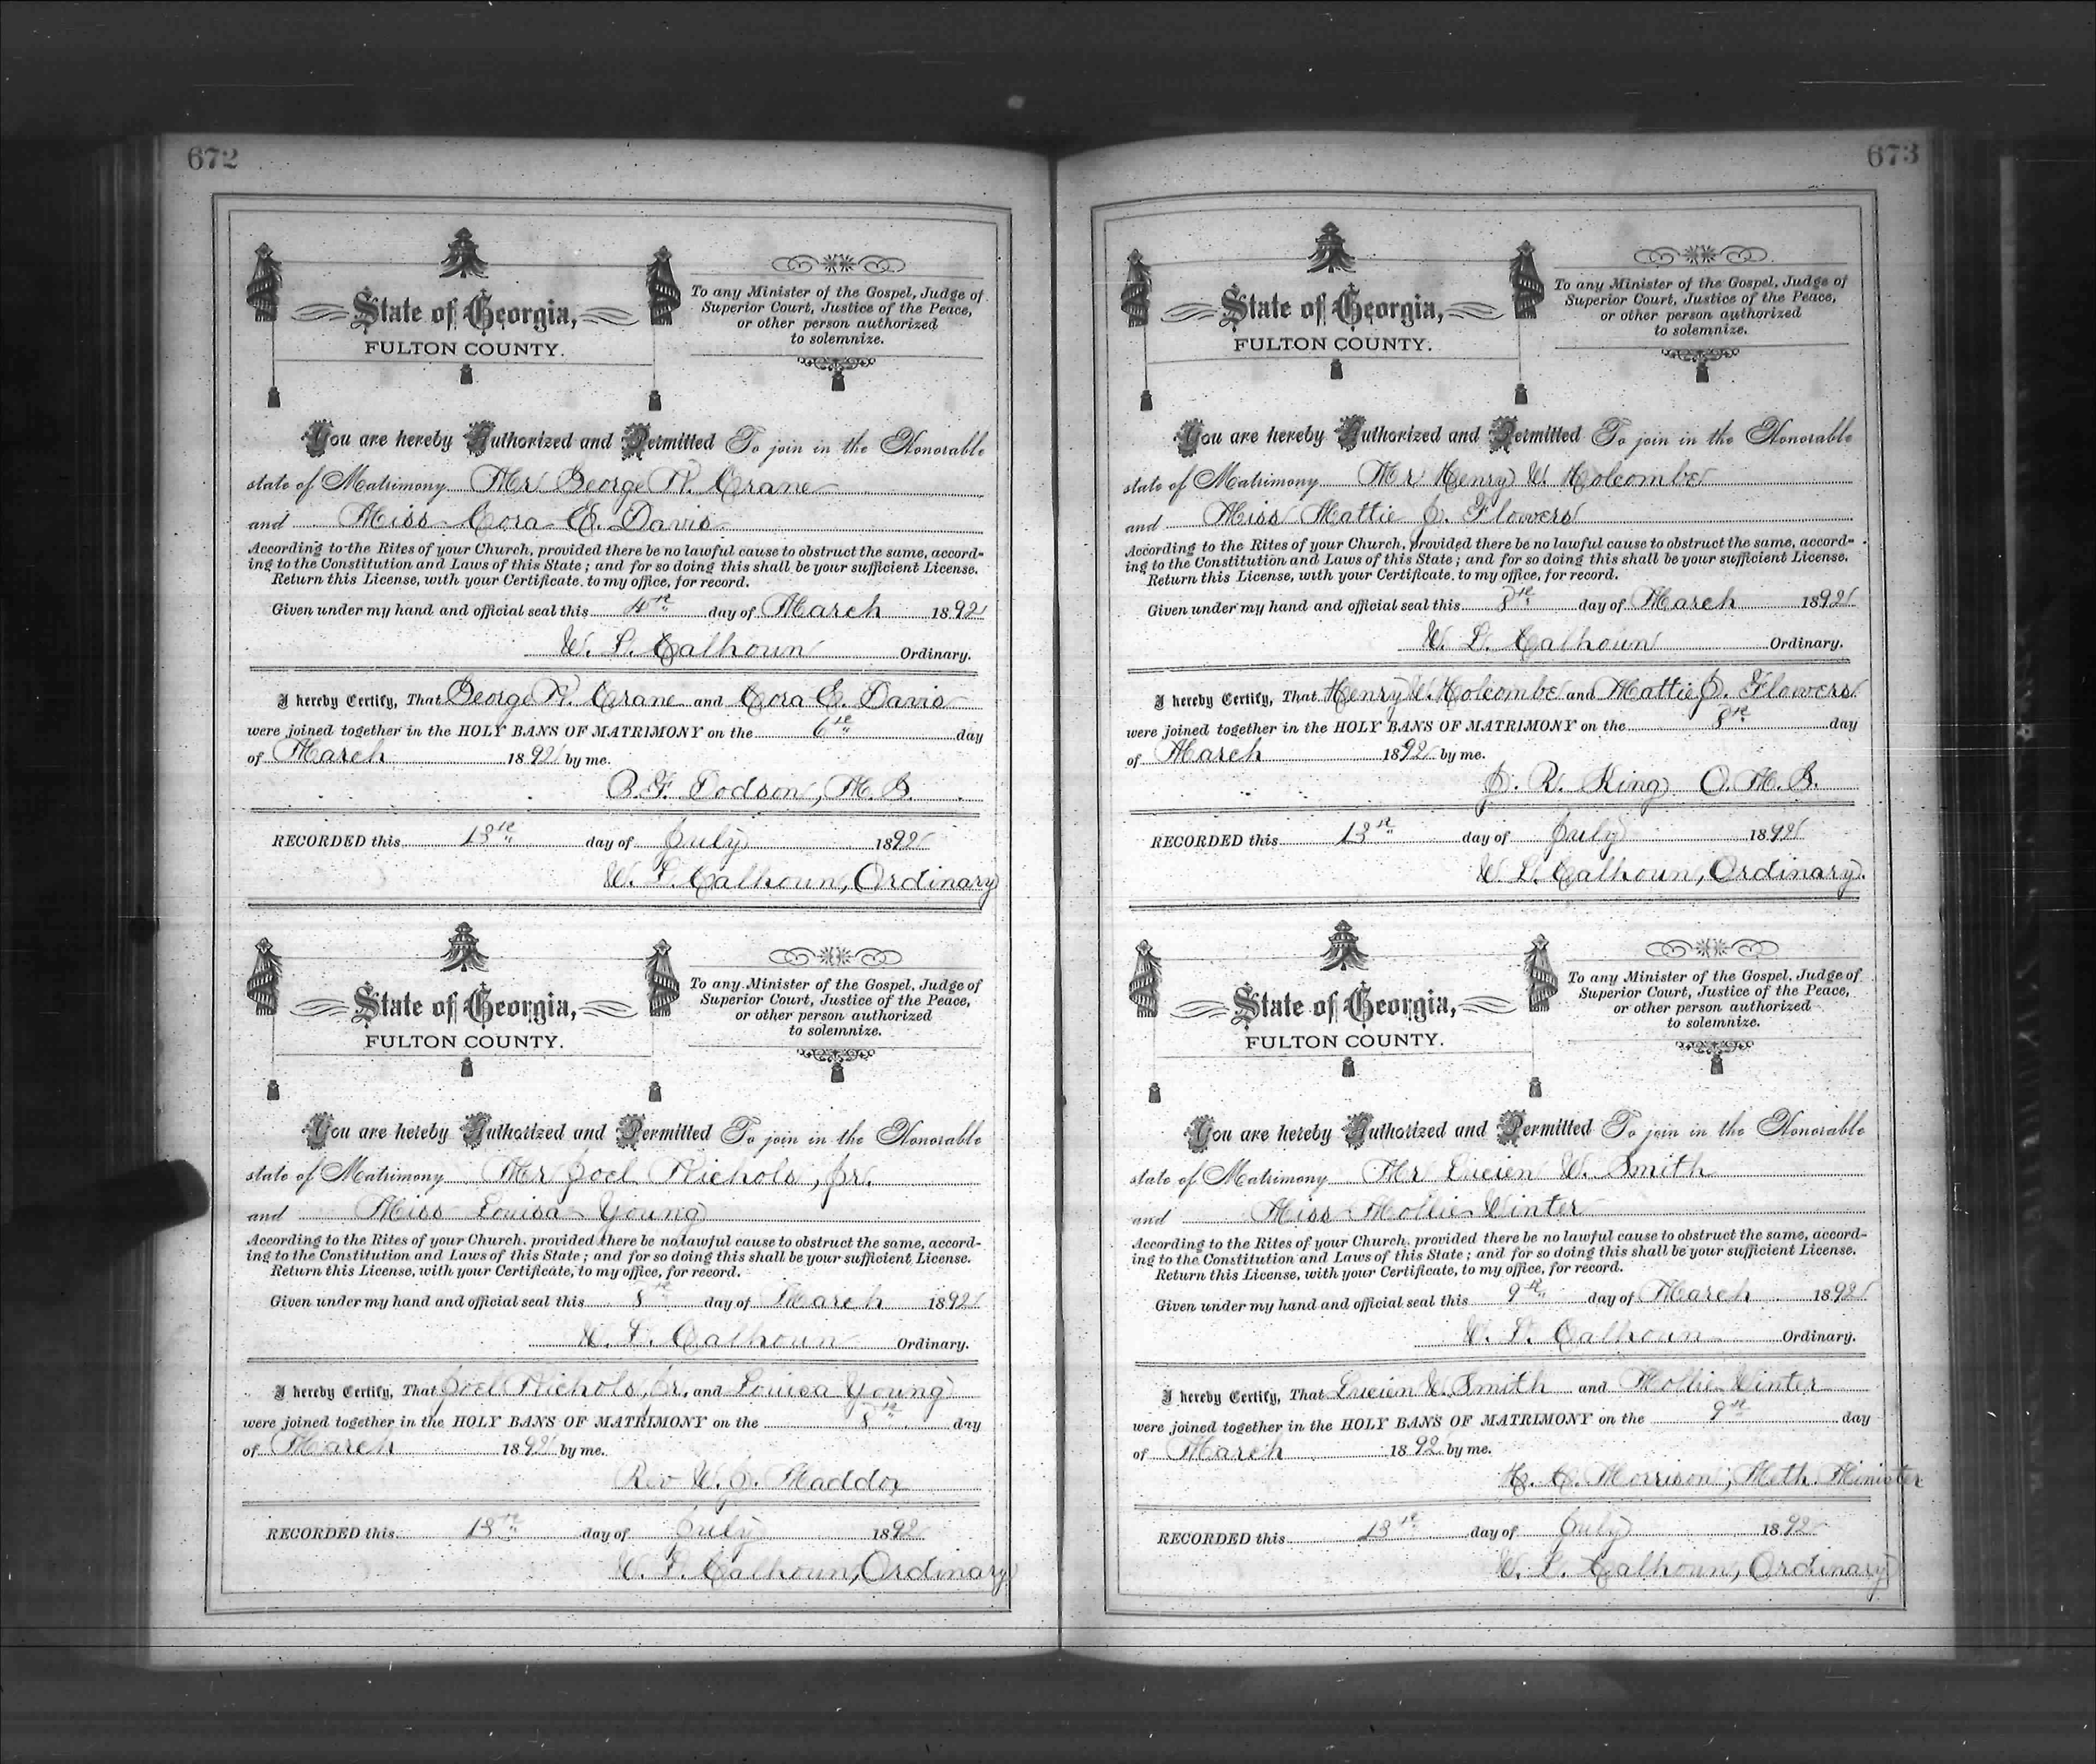 672
State of Georgia,
FULTON COUNTY.
To any Minister of the Gospel, Judge of
Superior Court, Justice of the Peace,
or other person authorized
to solemnize.
You are hereby Authorized and Permitted To join in the Honorable
state of Matrimony Mr George N. Crane
and Miss Cora E. Davis
According to the Rites of your Church, provided there be no lawful cause to obstruct the same, accord-
ing to the Constitution and Laws of this State; and for so doing this shall be your sufficient License.
Return this License, with your Certificate, to my office, for record.
Given under my hand and official seal this 4th day of March 1892
W. L. Calhoun Ordinary.
I hereby Certify, That George N. Crane and Cora E. Davis
were joined together in the HOLY BANS OF MATRIMONY on the 6th day
of March 1892 by me.
Dodson, M. G.
RECORDED this 13th day of July 1892
W. L. Calhoun, Ordinary
State of Georgia,
FULTON COUNTY.
To any Minister of the Gospel, Judge of
Superior Court, Justice of the Peace,
or other person authorized
to solemnize.
You are hereby Authorized and Permitted To join in the Honorable
state of Matrimony Mr Joel Nichols, Jr.
and Miss Louisa Young
According to the Rites of your Church, provided there be no lawful cause to obstruct the same, accord-
ing to the Constitution and Laws of this State; and for so doing this shall be your sufficient License.
Return this License, with your Certificate, to my office, for record.
Given under my hand and official seal this 8th day of March 1892
W. L. Calhoun Ordinary.
I hereby Certify, That Joel Nichols, Jr. and Louisa Young
were joined together in the HOLY BANS OF MATRIMONY on the 8th day
of March 1892 by me.
Rev W. J. Maddox
RECORDED this 13th day of July 1892
W. L. Calhoun, Ordinary
673
State of Georgia,
FULTON COUNTY.
To any Minister of the Gospel, Judge of
Superior Court, Justice of the Peace,
or other person authorized
to solemnize.
You are hereby Authorized and Permitted To join in the Honorable
state of Matrimony Mr Henry W. Holcombe
and Miss Mattie J. Flowers
According to the Rites of your Church, provided there be no lawful cause to obstruct the same, accord-
ing to the Constitution and Laws of this State; and for so doing this shall be your sufficient License.
Return this License, with your Certificate, to my office, for record.
Given under my hand and official seal this 8th day of March 1892
W. L. Calhoun Ordinary.
I hereby Certify, That Henry W. Holcombe and Mattie J. Flowers
were joined together in the HOLY BANS OF MATRIMONY on the 8th day
of March 1892 by me.
J. R. King O. M. G.
RECORDED this 13th day of July 1892
W. L. Calhoun, Ordinary.
State of Georgia,
FULTON COUNTY.
To any Minister of the Gospel, Judge of
Superior Court, Justice of the Peace,
or other person authorized
to solemnize.
You are hereby Authorized and Permitted To join in the Honorable
state of Matrimony Mr Lucien W. Smith
and Miss Mollie Winter
According to the Rites of your Church, provided there be no lawful cause to obstruct the same, accord-
ing to the Constitution and Laws of this State; and for so doing this shall be your sufficient License.
Return this License, with your Certificate, to my office, for record.
Given under my hand and official seal this 9th day of March 1892
W. L. Calhoun Ordinary.
I hereby Certify, That Lucien W. Smith and Mollie Winter
were joined together in the HOLY BANS OF MATRIMONY on the 9th day
of March 1892 by me.
H. C. Morrison, Meth. Minister
RECORDED this 13th day of July 1892
W. L. Calhoun, Ordinary